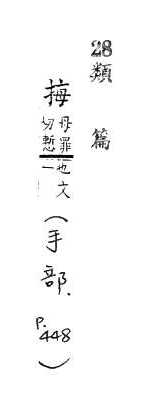 28類篇
挴母罪切慙也文一(手部. P.448)